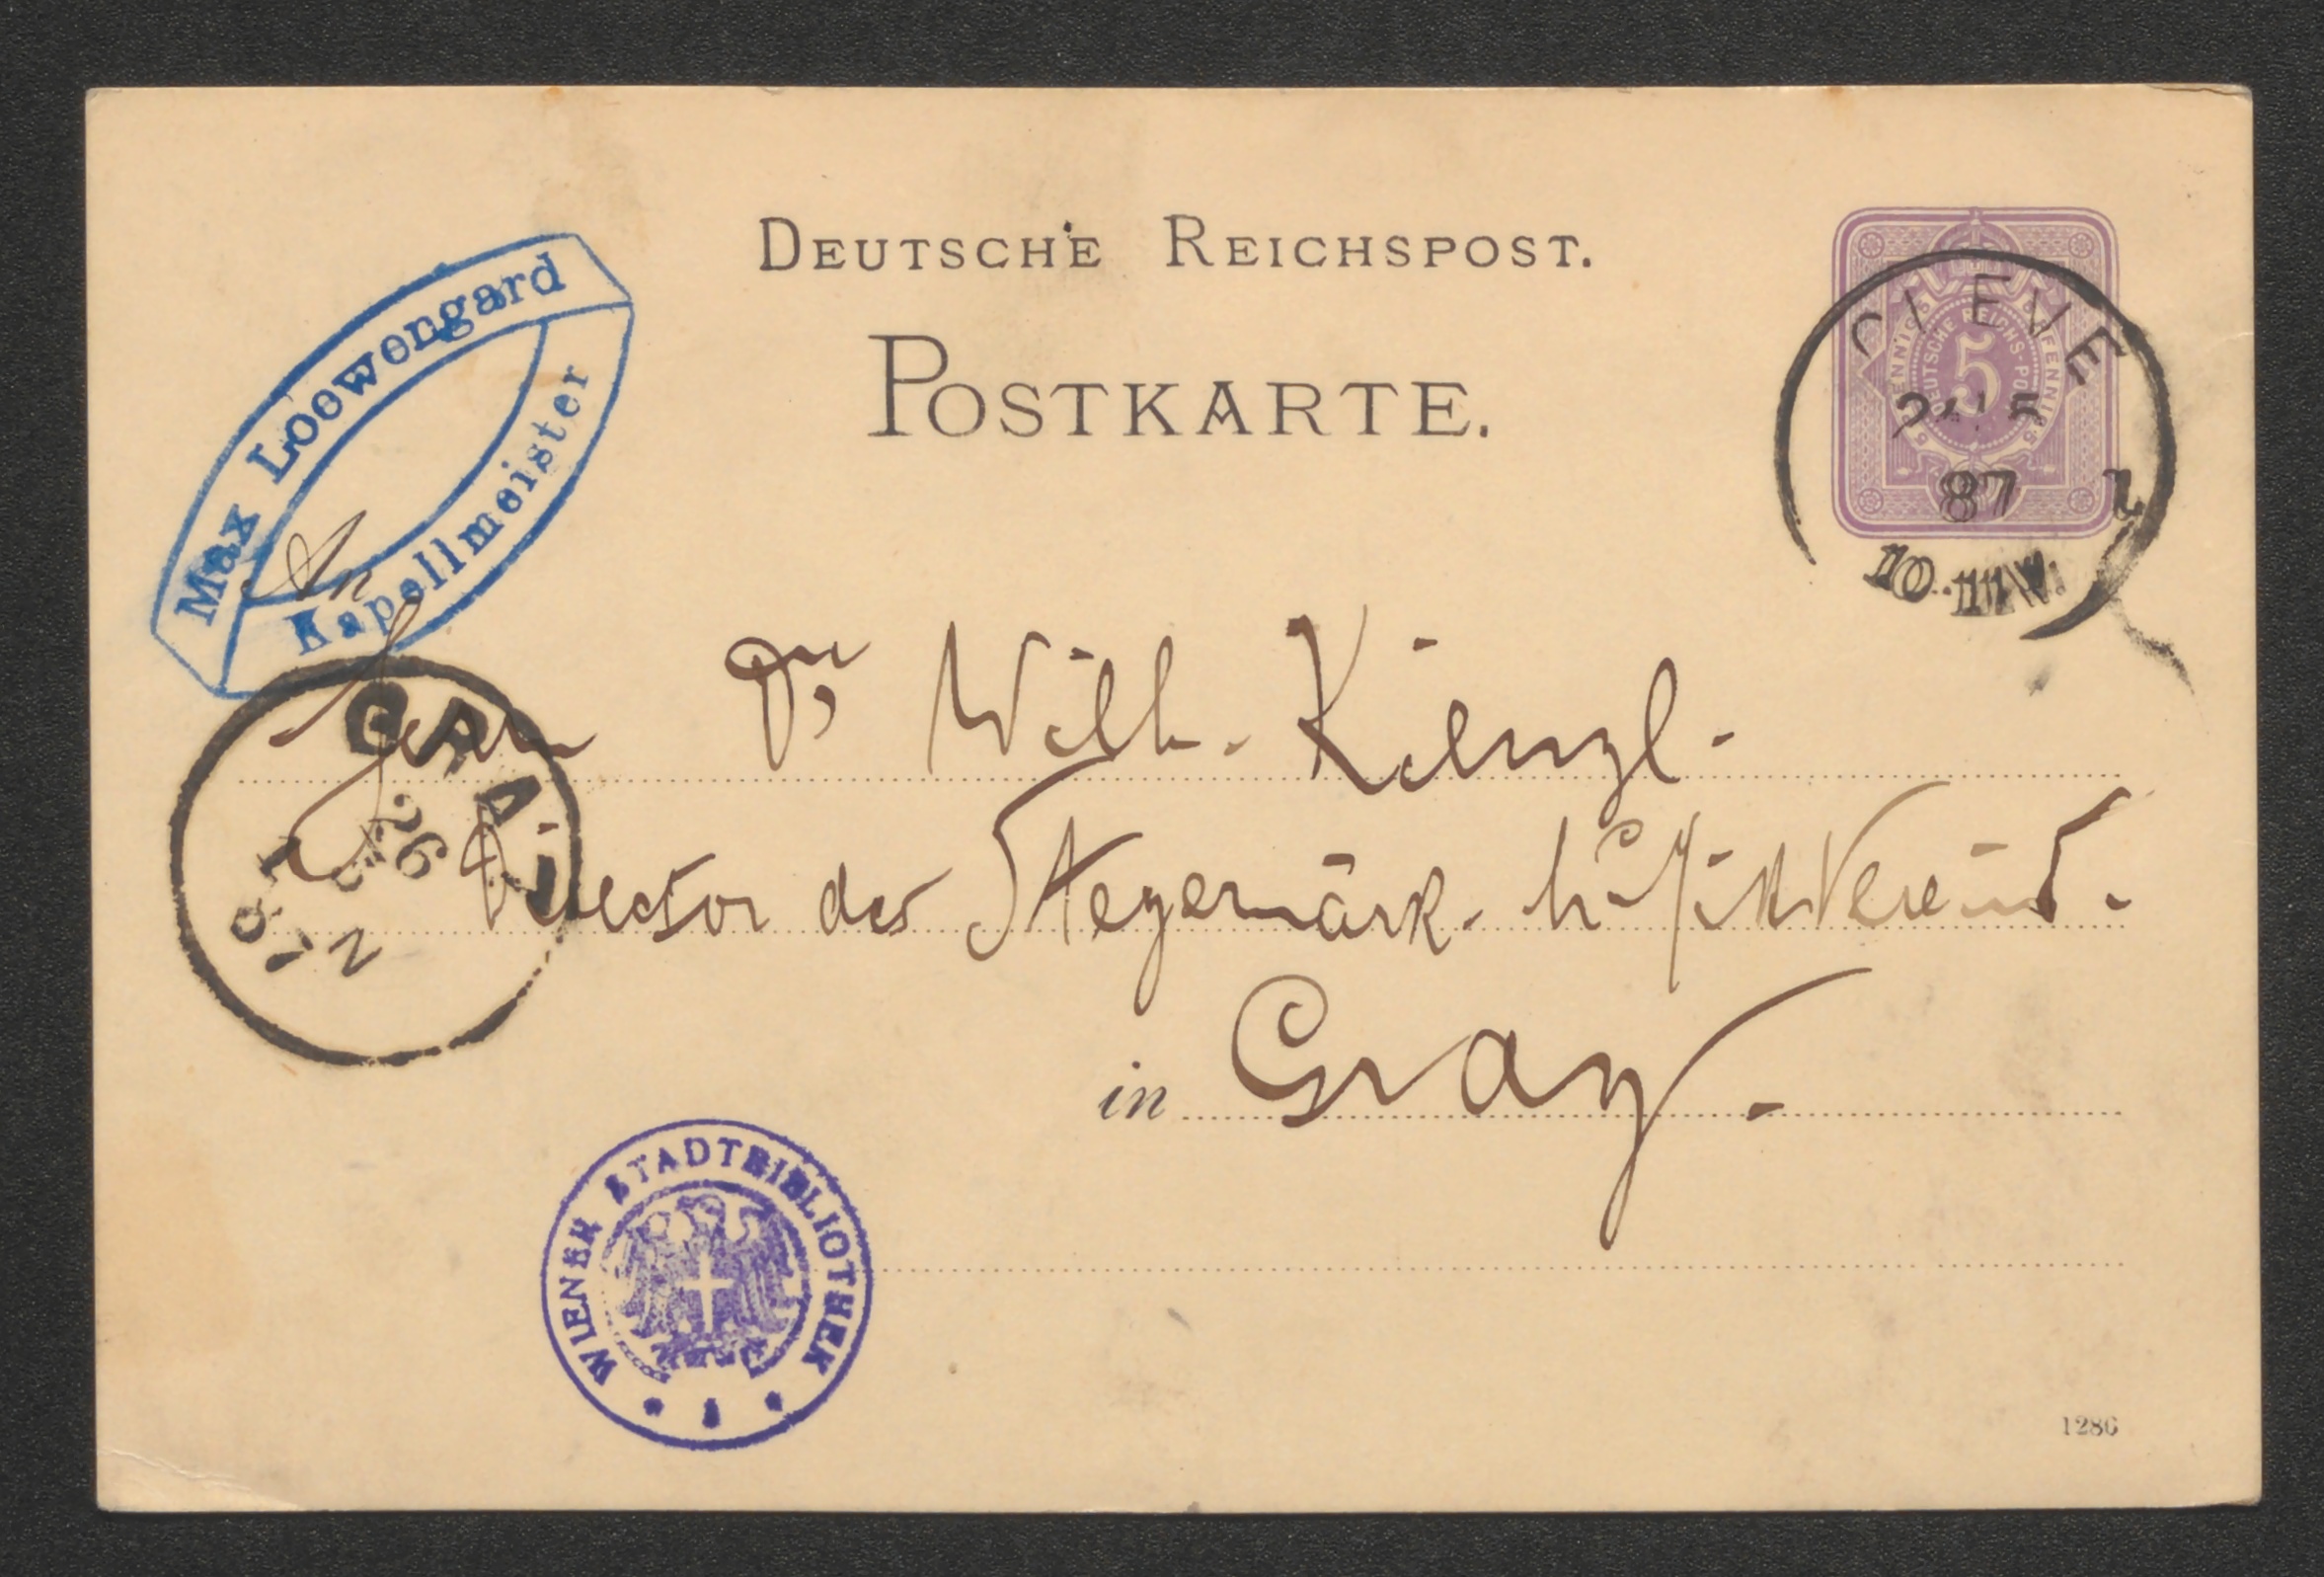 DEUTSCHE REICHSPOST.
POSTKARTE.
Max Loewengard
Kapellmeister
PFENNIG 5 PFENNIG
DEUTSCHE REICHS-POST
5
CLEVE
87
10-11 V.
An
Herrn Dr Wilh. Kienzl.
Director des Steyermärk. Musikvereins.
in Graz.
GRAZ
26
5
87
WIENER STADTBIBLIOTHEK
1286